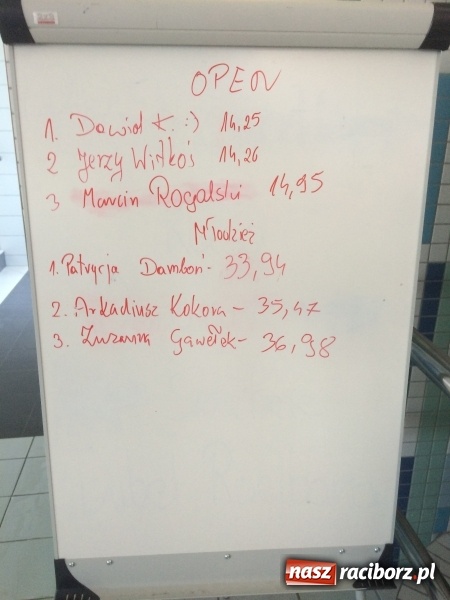 OPEN
1. Dawid K. :) 14,25
2 Jerzy Witkoś 14,26
3 Marcin Rogalski 14,95
Młodzież
1. Patrycja Damboń - 33,94
2. Arkadiusz Kokora - 35,47
3. Zuzanna Gawełek - 36,98
nasz raciborz.pl